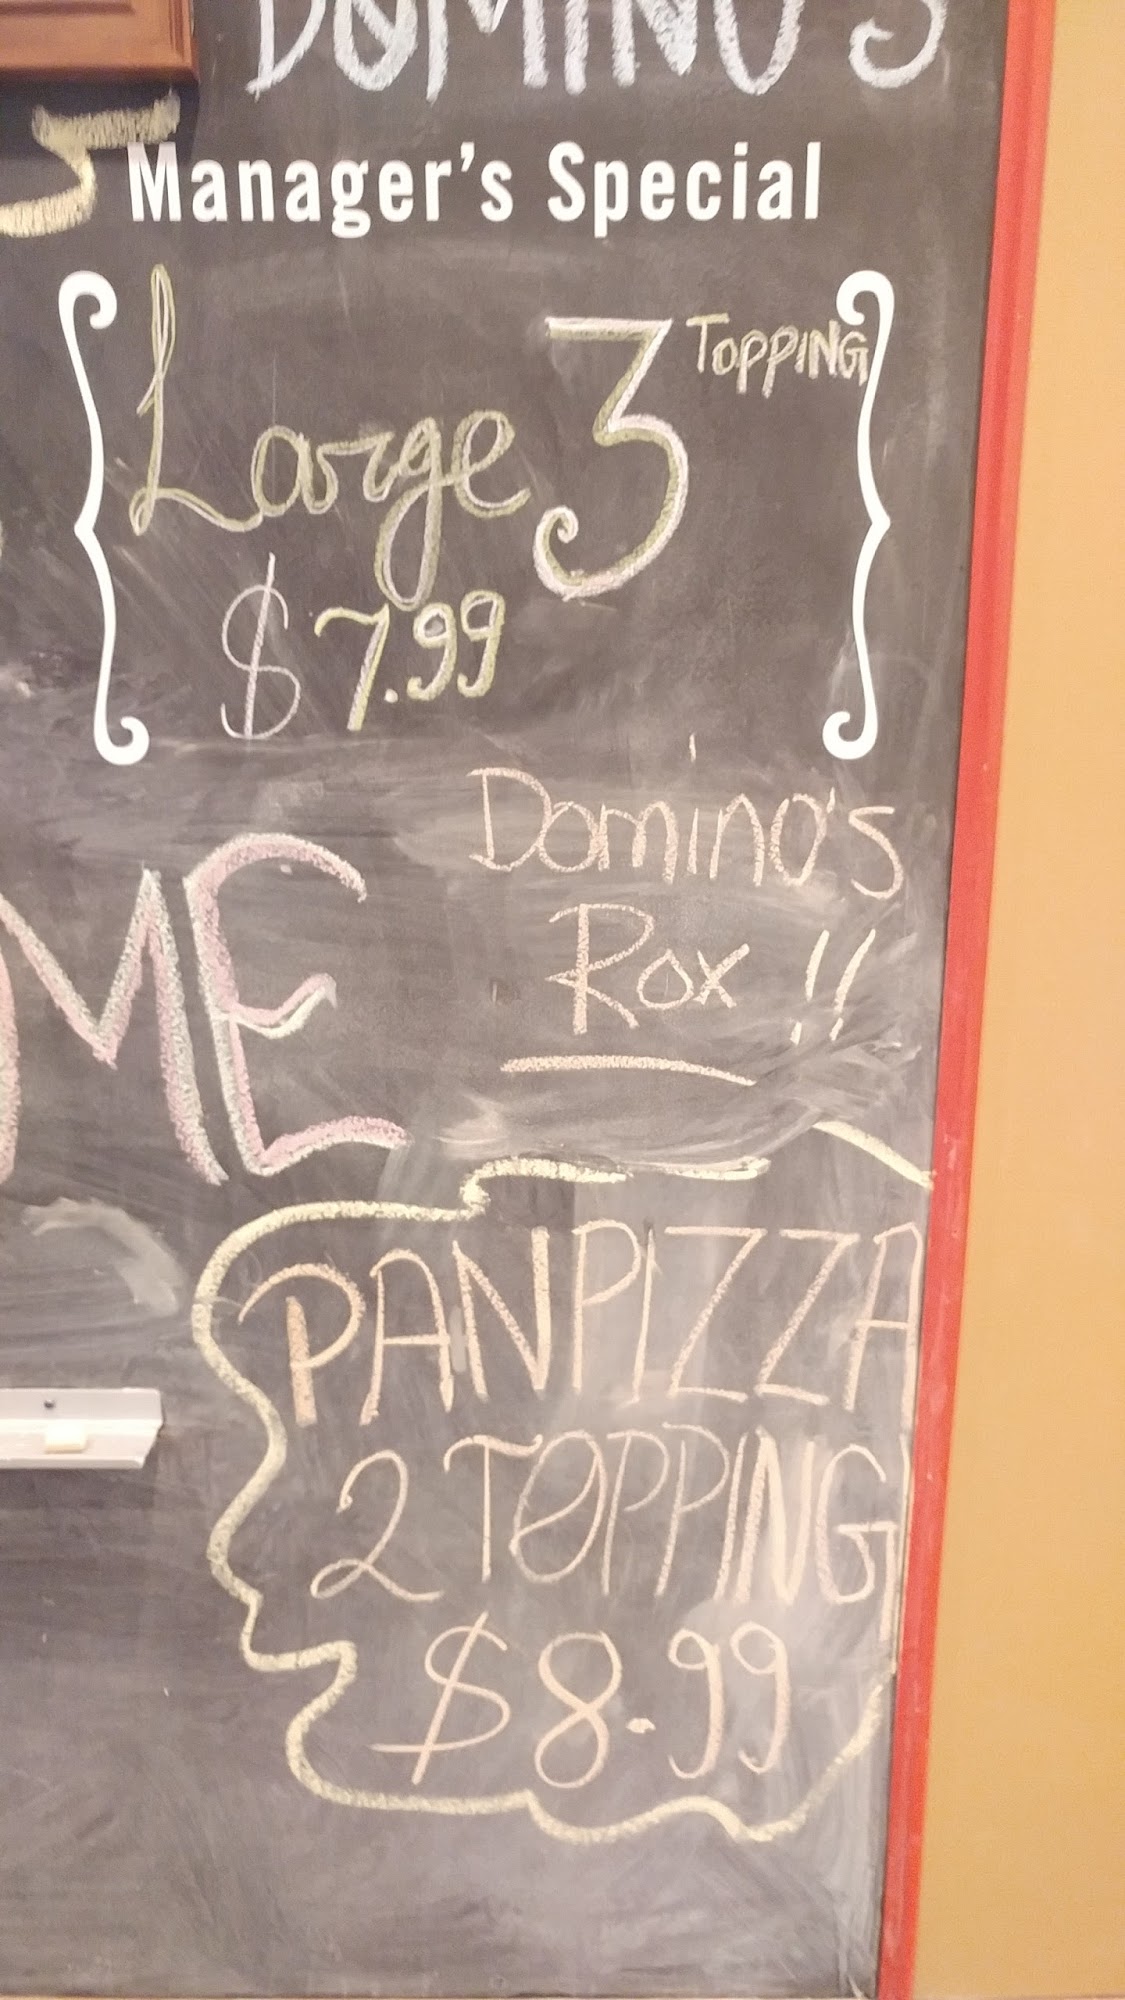 DOMINO'S
5
Manager's Special
Large 3 TOPPING
$7.99
Domino's
Rox !!
PAN PIZZA
2 TOPPING
$8.99